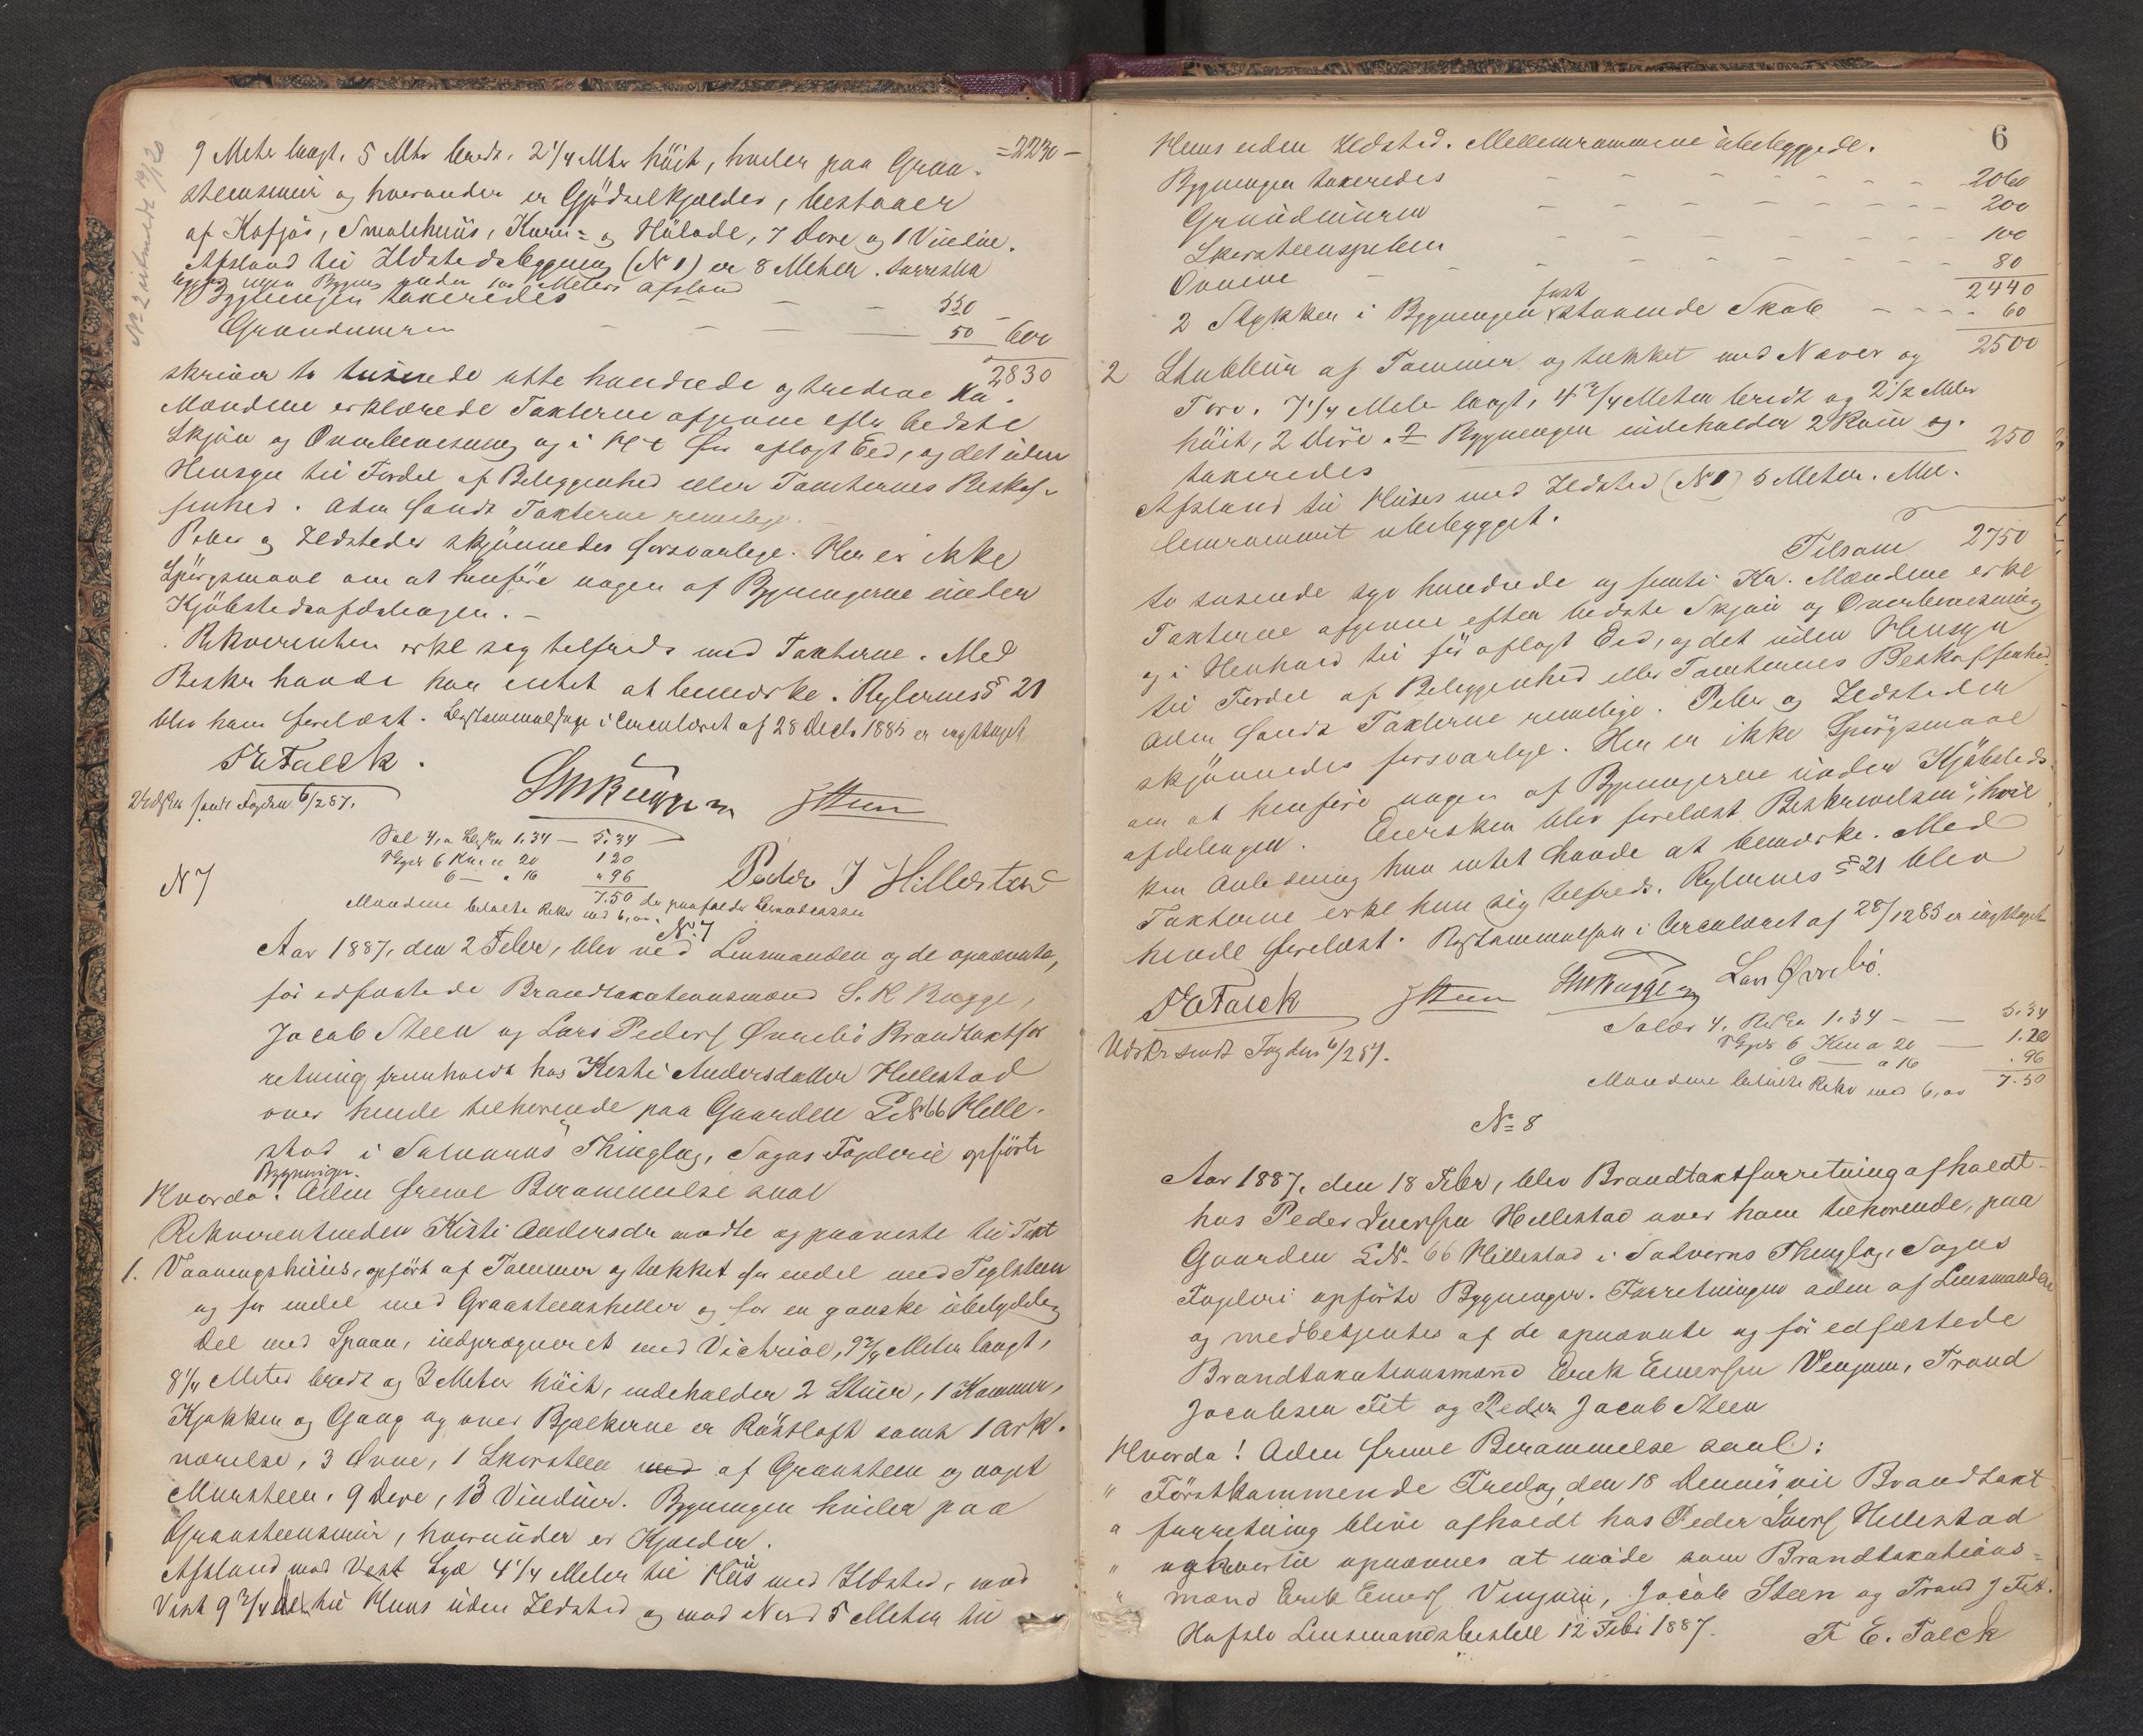 No 2 indmeldt 19/20
9 Meter langt, 5 Mtr bredt, 2 1/4 Mtr höit, hviler paa Graa- =2230-
steensmur og hvorunder er Gjödselkjælder, bestaaer
af Kofjös, Smalehuus, Korn- og Hölade, 7 Döre og 1 Vindue.
Afstand til Ildstedsbygning (No 1) er 8 Meter.
ingen Bygning under 100 Meters Afstand
Bygningen taxeredes - - - 550
Grundmuren - - - 50 600
2830
skriver to tusinde otte hundrede og tredive Kr.
Mændene erklærede Taxterne afgivne efter bedste
Skjön og Overbeviisning og i H t för aflagt Eed, og det uden
Hensyn til Fordel af Beliggenhed eller Tomternes Beskaf-
fenhed. Adm fandt Taxterne rimelige.
Piber og Ildsteder skjönnedes forsvarlige. Her er ikke
Spörgsmaal om at henföre nogen af Bygningerne under
Kjöbstedsafdelingen. -
Rekvirenten erkl sig tilfreds med Taxterne. Med
Beskr havde han intet at bemærke. Reglernes § 21
blev ham forelæst. Bestemmelsen i Circulæret af 28 Decbr 1885 er iagttaget
F E Falck. SKRugge J Steen
Udskr sendt Fogden 6/2 87.
Sal 4, a Beskr 1.34 — 5.34
6 Km a 20 1 20
6 — " 16 " 96
7.50 der paafaldt Brandcassen
Mændene betalte Rekv med 6,00.
Peder I Hillestad
No 7
No 7
Aar 1887, den 2 Febr, blev ved Lensmanden og de opnævnte,
för edfæstede Brandtaxationsmænd S. K Rugge,
Jacob Steen og Lars Peders Ørrebö Brandtaxtfor
retning fremholdt hos Kisti Andersdatter Hillestad
over hende tilhørende paa Gaarden L No 66 Hille-
stad i Solvorns Thinglag, Sogns Fogderie opförte
Bygninger.
Hvorda: Adm frem Berammelse saal
Rekvirentinden Kisti Andersdr mødte og paaviste til Taxt
1. Vaaningshuus, opfört af Tømmer og tækket for endel med Teglsteen
og for endel med Graasteensheller og for en ganske ubetydelig
Del med Spaan, indprægneret med Victriol, 9 3/4 Meter langt,
8 1/4 Meter bredt og 3 Meter höit, indeholder 2 Stuer, 1 Kammer,
Kjøkken og Gang og over Bjælkerne er Röstloft samt 1 Ark-
værelse, 3 Ovne, 1 Skorsteen med af Graasteen og noget
Mursteen, 9 Döre, 13 Vinduer. Bygningen hviler paa
Graasteensmur, hvorunder er Kjælder.
Afstand mod Vest Syd 4 1/4 Meter til Huus med Ildsted, mod
Vest 9 3/4 til Huus uden Ildsted og mod Nord 5 Meter til
6
Huus uden Ildsted. Mellemrummene ubebyggede.
Bygningen taxeredes - - - - - - 2060
Grundmuren - - - - - - 200
Skorsteenspiben - - - - - - 100
Ovnene - - - - - - 80
2440
fast
2 Stykker i Bygningen staaende Skab - - - 60
2500
2 Stabbur af Tømmer og tækket med Næver og
Torv. 7 1/4 Meter langt, 4 3/4 Meter bredt og 2 1/2 Meter
höit, 2 Döre. Bygningen indeholder 2 Rum og
taxeredes 250
Afstand til Huset med Ildsted (No 1) 5 Meter. Mel-
lemrummet ubebygget.
Tilsam 2750
to tusende syv hundrede og femti Kr. Mændene erkl
Taxterne afgivne efter bedste Skjön og Overbeviisning
og i Henhold til för aflagt Eed, og det uden Hensyn
til Fordel af Beliggenhed eller Tomternes Beskaffenhed.
Adm fandt Taxterne rimelige. Piber og Ildsteder
skjönnedes forsvarlige. Her er ikke Spörgsmaal
om at henföre nogen af Bygningerne under Kjöbsteds-
afdelingen. Eiersken blev forelæst Beskrivelsen, i hvil-
ken Anledning hun intet havde at bemærke. Med
Taxterne erkl hun sig tilfreds. Reglernes § 21 blev
hende forelæst. Bestemmelsen i Circulæret af 28/12 85 er iagttaget
F E Falck J Steen SKRugge Lars Ørrebö.
Salær 4. Beskr 1.34 — — 5.34
6 Km a 20 — 1.20
6 — a 16 .96
Mændene betalte Rekv med 6,00 7.50
Udskr sendt Fogden 6/2 87.
No 8
Aar 1887, den 18 Febr, blev Brandtaxtforretning afholdt
hos Peder Iversen Hillestad over ham tilhørende, paa
Gaarden L No 66 Hillestad i Solvorns Thinglag, Sogns
Fogderi opförte Bygninger. Forretningen adm af Lensmanden
og medbetjentes af de opnævnte og för edfæstede
Brandtaxationsmænd Erik Emersen Venjum, Trond
Jacobsen Fet og Peder Jacob Steen
Hvorda! Adm frem Berammelse saal:
" Förstkommende Fredag, den 18 Dennes vil Brandtaxt
" forretning blive afholdt hos Peder Ivers Hillestad
" og hvortil opnævnes at möde som Brandtaxations-
" mænd Erik Emers Venjum, Jacob Steen og Trond J Fet.
Hafslo Lensmandsbestill 12 Febr 1887. F E. Falck